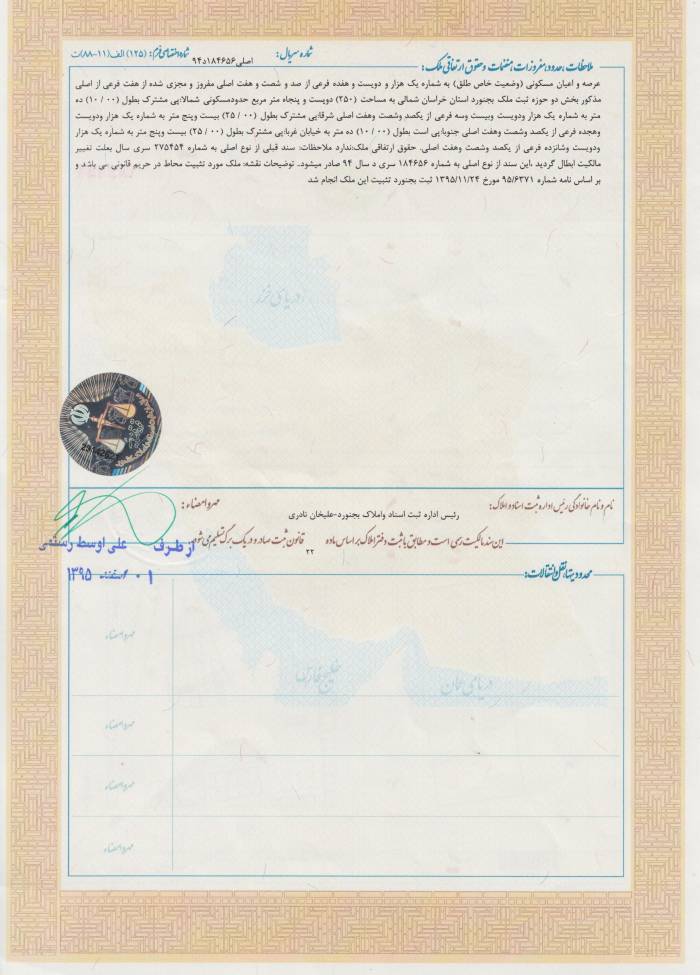 شماره سریال: اصلی ۱۸۴۶۵۶د۹۴ شناسه انتهای فرم: (۱۲۵) الف(۱۱-۸۸)ت
ملاحظات، حدود، مفروزات، منضمات و حقوق ارتفاقی ملک:
عرصه و اعیان مسکونی (وضعیت خاص طلق) به شماره یک هزار و دویست و هفده فرعی از صد و شصت و هفت اصلی مفروز و مجزی شده از هفت فرعی از اصلی
مذکور بخش دو حوزه ثبت ملک بجنورد استان خراسان شمالی به مساحت (۲۵۰) دویست و پنجاه متر مربع حدودمسکونی شمالا:پی مشترک بطول (۰۰ / ۱۰) ده
متر به شماره یک هزار ودویست وبیست وسه فرعی از یکصد وشصت وهفت اصلی شرقا:پی مشترک بطول (۰۰ / ۲۵) بیست وپنج متر به شماره یک هزار ودویست
وهجده فرعی از یکصد وشصت وهفت اصلی جنوبا:پی است بطول (۰۰ / ۱۰) ده متر به خیابان غربا:پی مشترک بطول (۰۰ / ۲۵) بیست وپنج متر به شماره یک هزار
ودویست وشانزده فرعی از یکصد وشصت وهفت اصلی. حقوق ارتفاقی ملک:ندارد ملاحظات: سند قبلی از نوع اصلی به شماره ۲۷۵۴۵۴ سری سال بعلت تغییر
مالکیت ابطال گردید ،این سند از نوع اصلی به شماره ۱۸۴۶۵۶ سری د سال ۹۴ صادر میشود. توضیحات نقشه: ملک مورد تثبیت محاط در حریم قانونی می باشد و
بر اساس نامه شماره ۹۵/۶۳۷۱ مورخ ۱۳۹۵/۱۱/۲۴ ثبت بجنورد تثبیت این ملک انجام شد
دریای خزر
نام و نام خانوادگی رئیس اداره ثبت اسناد و املاک: مهر و امضاء:
رئیس اداره ثبت اسناد واملاک بجنورد-علیخان نادری
این سند مالکیت رسمی است و مطابق با ثبت دفتر املاک بر اساس ماده ۲۲ قانون ثبت صادر و در یک برگ تسلیم می شود.
از طرف علی اوسط رستمی
۰۱ اسفند ۱۳۹۵
محدودیتها، نقل و انتقالات:
مهر و امضاء
خلیج فارس
دریای عمان
مهر و امضاء
مهر و امضاء
مهر و امضاء